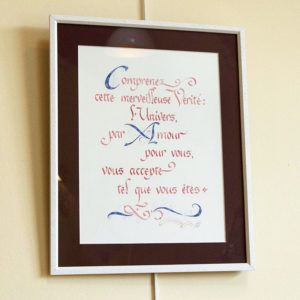 Comprenez
cette merveilleuse Vérité:
l'Univers,
par Amour
pour vous,
vous accepte
tel que vous êtes